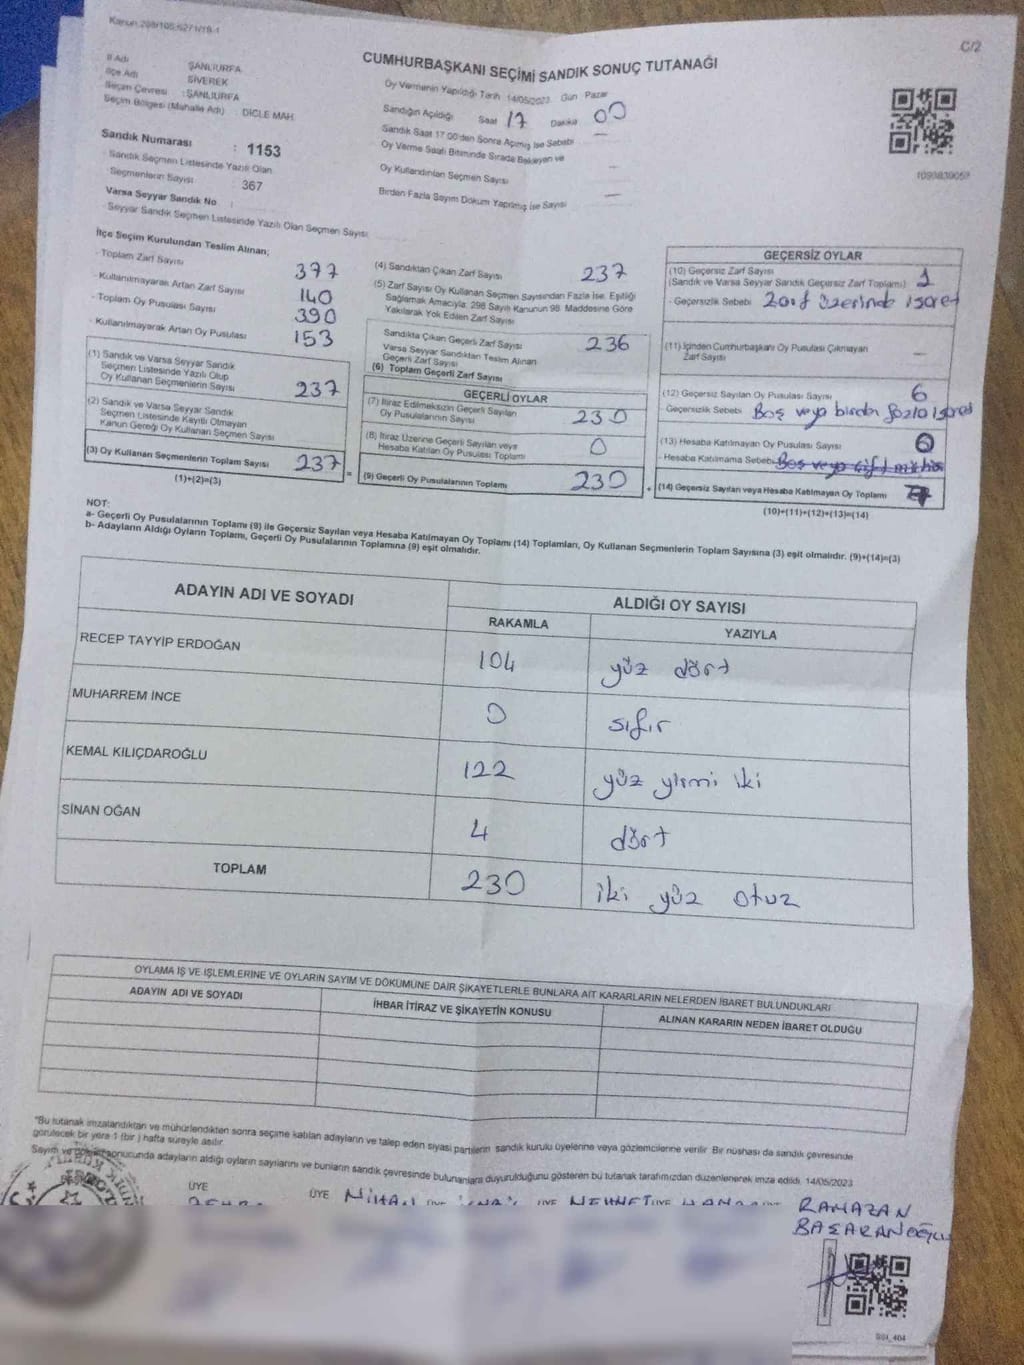 Kanun 298/105-6271/18-1
C/2
CUMHURBAŞKANI SEÇİMİ SANDIK SONUÇ TUTANAĞI
İl Adı : ŞANLIURFA
İlçe Adı : SİVEREK
Seçim Çevresi : ŞANLIURFA
Seçim Bölgesi (Mahalle Adı) : DİCLE MAH.
Oy Vermenin Yapıldığı Tarih 14/05/2023 Gün Pazar
Sandığın Açıldığı Saat 17 Dakika 00
Sandık Saat 17.00'den Sonra Açılmış İse Sebebi —
Oy Verme Saati Bitiminde Sırada Bekleyen ve
Oy Kullandırılan Seçmen Sayısı —
Birden Fazla Sayım Döküm Yapılmış İse Sayısı —
1093839057
Sandık Numarası : 1153
- Sandık Seçmen Listesinde Yazılı Olan
Seçmenlerin Sayısı : 367
Varsa Seyyar Sandık No :
- Seyyar Sandık Seçmen Listesinde Yazılı Olan Seçmen Sayısı:
İlçe Seçim Kurulundan Teslim Alınan;
- Toplam Zarf Sayısı 377
- Kullanılmayarak Artan Zarf Sayısı 140
- Toplam Oy Pusulası Sayısı 390
- Kullanılmayarak Artan Oy Pusulası 153
(1) Sandık ve Varsa Seyyar Sandık
Seçmen Listesinde Yazılı Olup
Oy Kullanan Seçmenlerin Sayısı 237
(2) Sandık ve Varsa Seyyar Sandık
Seçmen Listesinde Kayıtlı Olmayan
Kanun Gereği Oy Kullanan Seçmen Sayısı
(3) Oy Kullanan Seçmenlerin Toplam Sayısı 237
(1)+(2)=(3)
(4) Sandıktan Çıkan Zarf Sayısı 237
(5) Zarf Sayısı Oy Kullanan Seçmen Sayısından Fazla İse, Eşitliği
Sağlamak Amacıyla, 298 Sayılı Kanunun 98. Maddesine Göre
Yakılarak Yok Edilen Zarf Sayısı
Sandıkta Çıkan Geçerli Zarf Sayısı 236
Varsa Seyyar Sandıktan Teslim Alınan
Geçerli Zarf Sayısı
(6) Toplam Geçerli Zarf Sayısı
GEÇERLİ OYLAR
(7) İtiraz Edilmeksizin Geçerli Sayılan
Oy Pusulalarının Sayısı 230
(8) İtiraz Üzerine Geçerli Sayılan veya
Hesaba Katılan Oy Pusulası Toplamı 0
= (9) Geçerli Oy Pusulalarının Toplamı 230
GEÇERSİZ OYLAR
(10) Geçersiz Zarf Sayısı 1
(Sandık ve Varsa Seyyar Sandık Geçersiz Zarf Toplamı)
- Geçersizlik Sebebi Zarf üzerinde işaret
(11) İçinden Cumhurbaşkanı Oy Pusulası Çıkmayan
Zarf Sayısı —
(12) Geçersiz Sayılan Oy Pusulası Sayısı 6
- Geçersizlik Sebebi Boş veya birden fazla işaret
(13) Hesaba Katılmayan Oy Pusulası Sayısı 0
- Hesaba Katılmama Sebebi Boş veya çift mühür
+ (14) Geçersiz Sayılan veya Hesaba Katılmayan Oy Toplamı 7
(10)+(11)+(12)+(13)=(14)
NOT:
a- Geçerli Oy Pusulalarının Toplamı (9) ile Geçersiz Sayılan veya Hesaba Katılmayan Oy Toplamı (14) Toplamları, Oy Kullanan Seçmenlerin Toplam Sayısına (3) eşit olmalıdır. (9)+(14)=(3)
b- Adayların Aldığı Oyların Toplamı, Geçerli Oy Pusulalarının Toplamına (9) eşit olmalıdır.
ADAYIN ADI VE SOYADI
ALDIĞI OY SAYISI
RAKAMLA YAZIYLA
RECEP TAYYİP ERDOĞAN 104 yüz dört
MUHARREM İNCE 0 sıfır
KEMAL KILIÇDAROĞLU 122 yüz yirmi iki
SİNAN OĞAN 4 dört
TOPLAM 230 iki yüz otuz
OYLAMA İŞ VE İŞLEMLERİNE VE OYLARIN SAYIM VE DÖKÜMÜNE DAİR ŞİKAYETLERLE BUNLARA AİT KARARLARIN NELERDEN İBARET BULUNDUKLARI
ADAYIN ADI VE SOYADI İHBAR İTİRAZ VE ŞİKAYETİN KONUSU ALINAN KARARIN NEDEN İBARET OLDUĞU
"Bu tutanak imzalandıktan ve mühürlendikten sonra seçime katılan adayların ve talep eden siyasi partilerin sandık kurulu üyelerine veya gözlemcilerine verilir. Bir nüshası da sandık çevresinde
görülecek bir yere 1 (bir) hafta süreyle asılır.
Sayım ve döküm sonucunda adayların aldığı oyların sayılarını ve bunların sandık çevresinde bulunanlara duyurulduğunu gösteren bu tutanak tarafımızdan düzenlenerek imza edildi. 14/05/2023
ÜYE ÜYE NİHAN ÜYE ÜYE MEHMET ÜYE
RAMAZAN
BAŞARANOĞLU